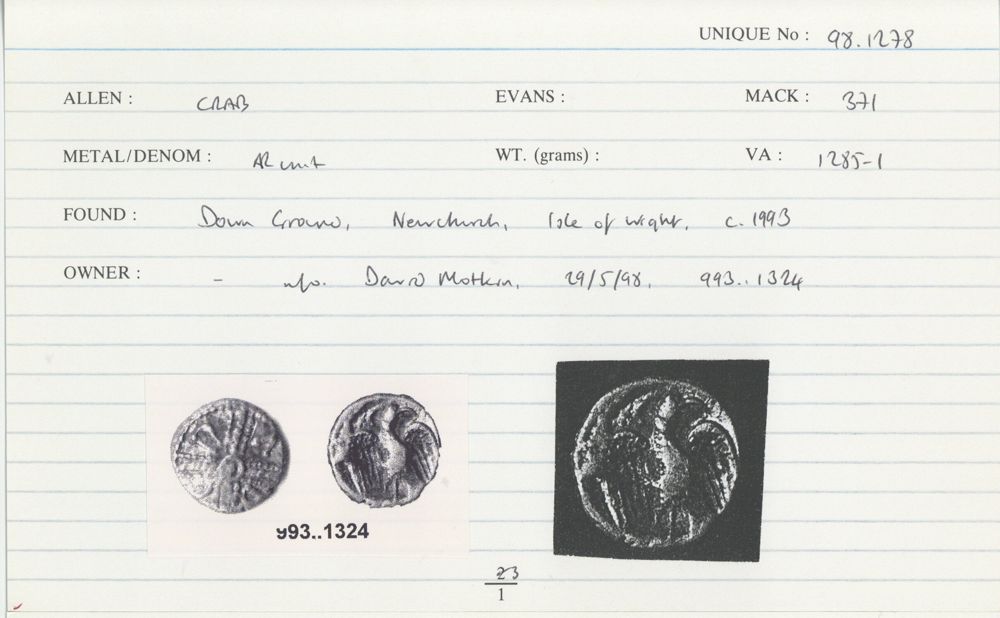 UNIQUE No : 98.1278
ALLEN : CRAB EVANS : MACK : 371
METAL/DENOM : AR unit WT. (grams) : VA : 1285-1
FOUND : Down Ground, Newchurch, Isle of Wight, c. 1993
OWNER : – info. David Motkin, 29/5/98, 993..1324
993..1324
23
1